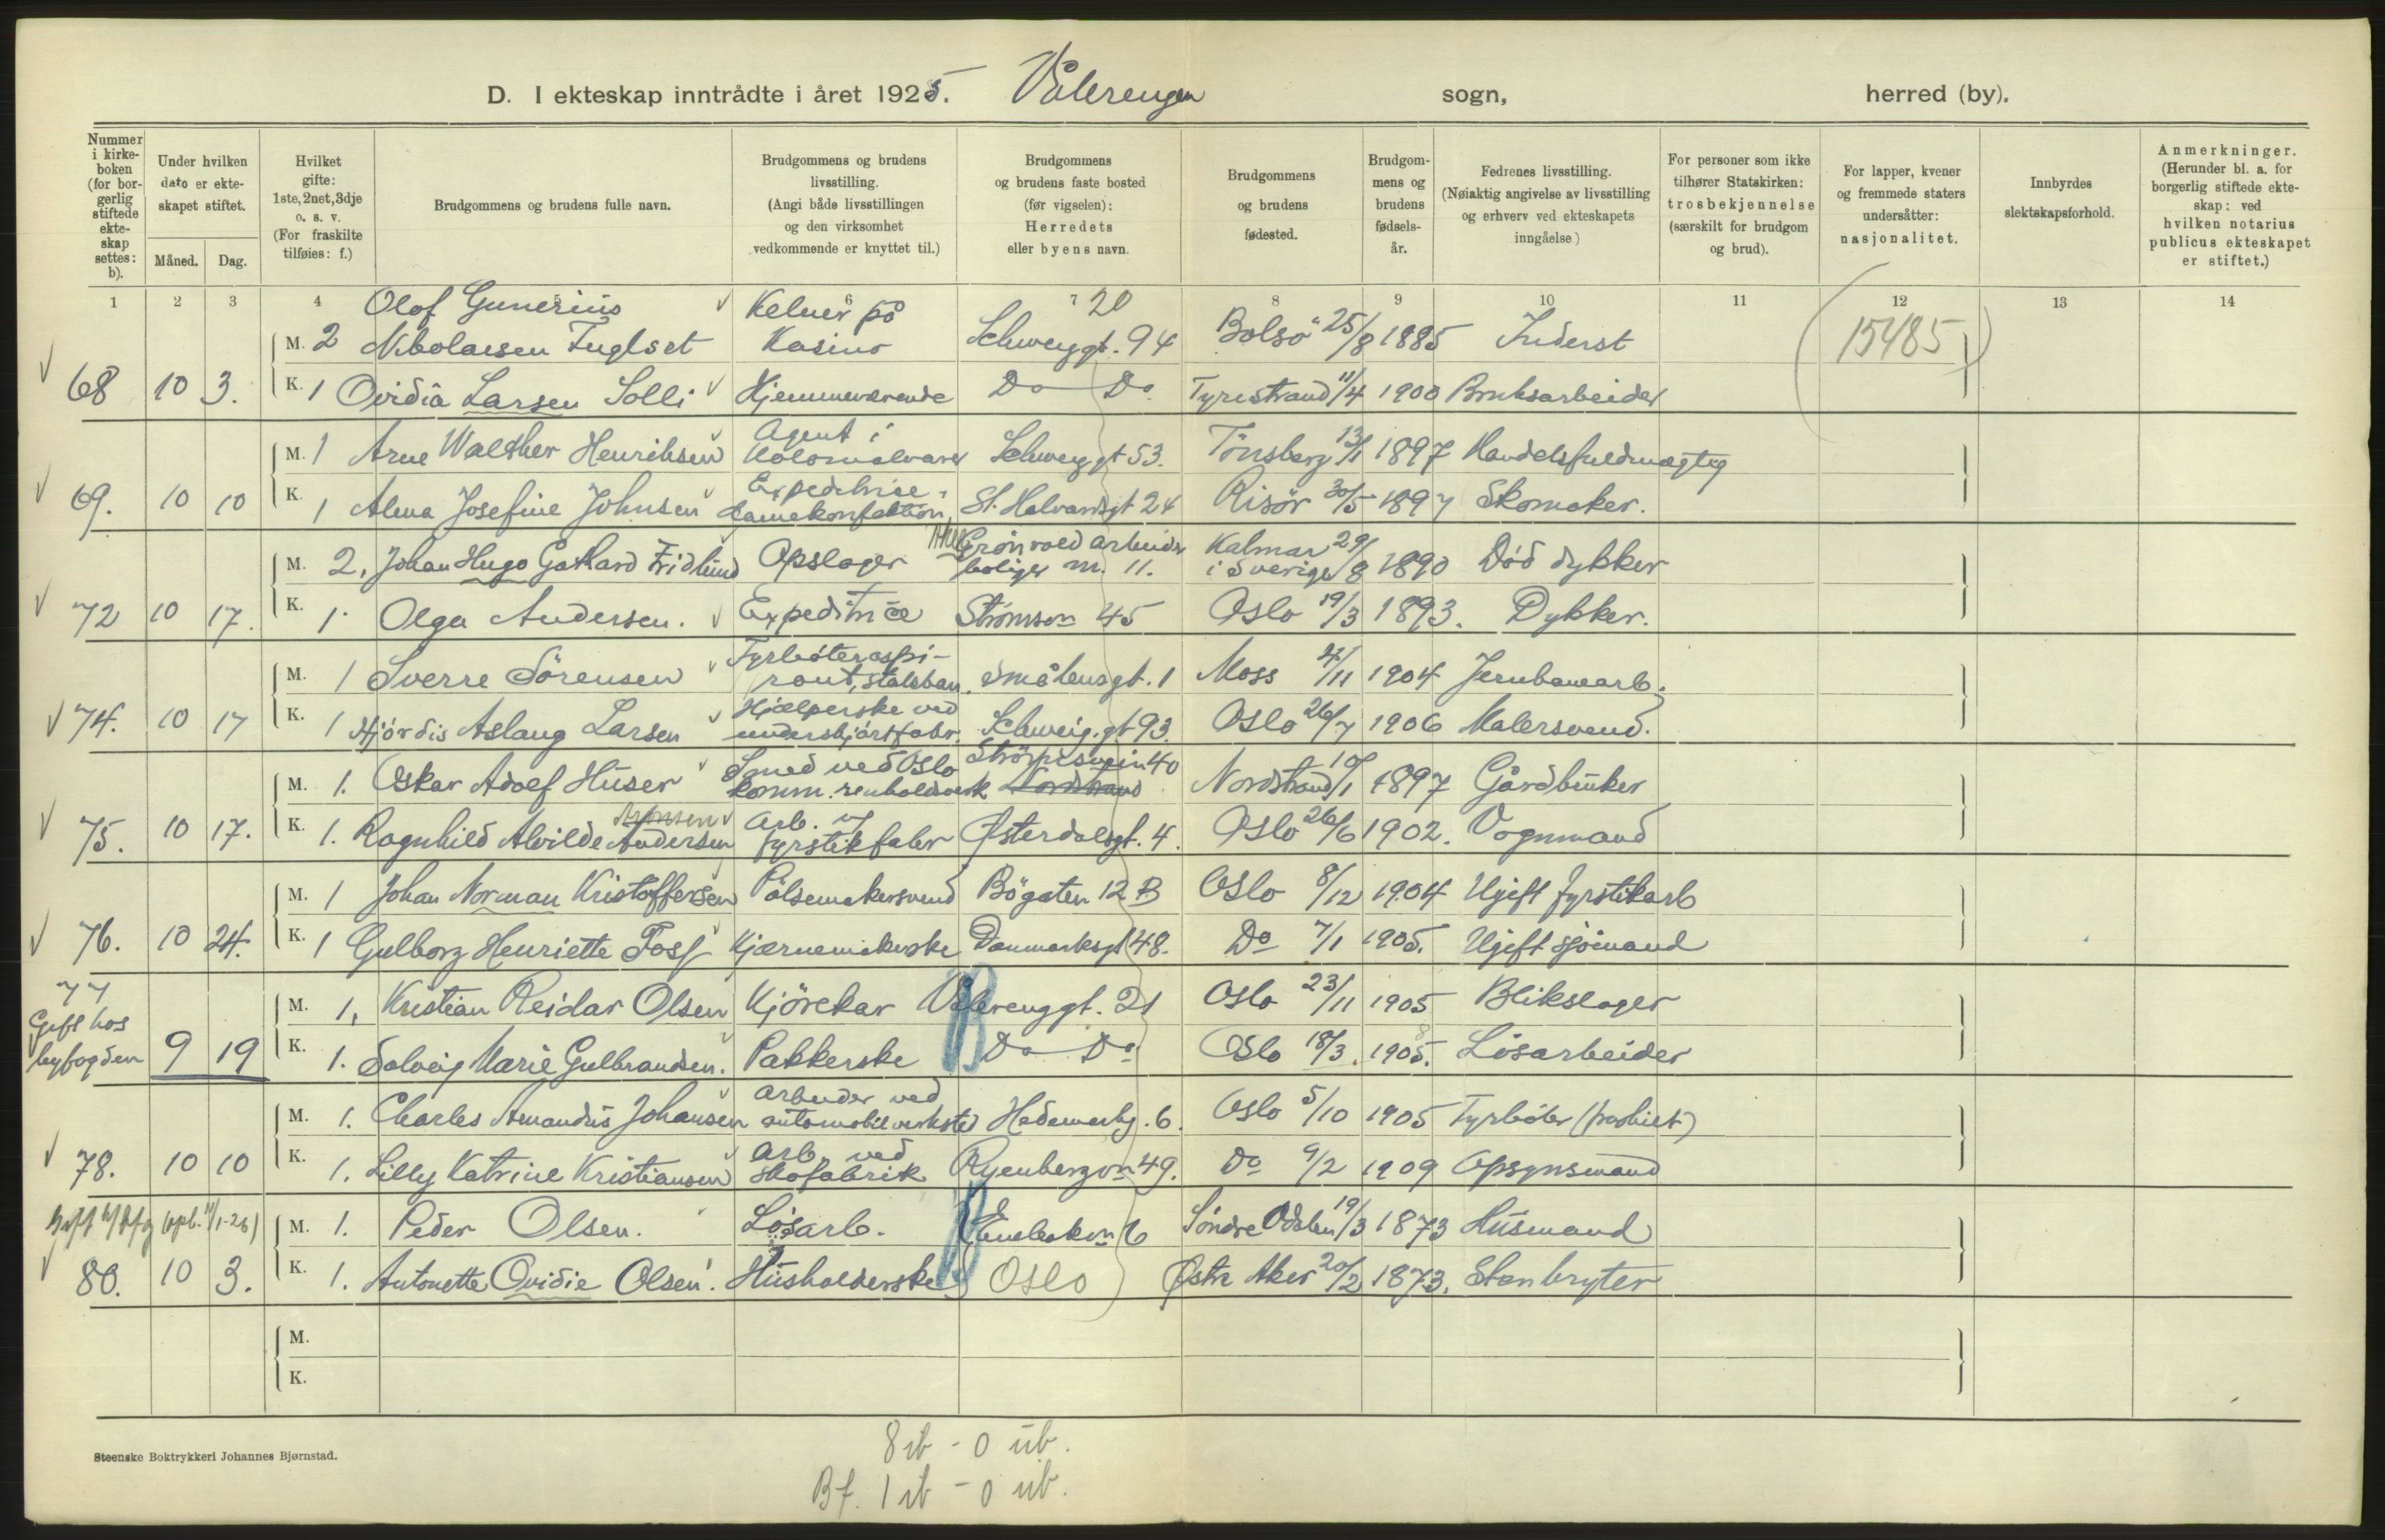 D. I ekteskap inntrådte i året 1925. Vålerengen sogn, herred (by).
Nummer i kirke-boken (for bor-gerlig stiftede ekte-skap settes: b).
Under hvilken dato er ekte-skapet stiftet.
Måned. Dag.
Hvilket gifte: 1ste, 2net, 3dje o. s. v. (For fraskilte tilføies: f.)
Brudgommens og brudens fulle navn.
Brudgommens og brudens livsstilling. (Angi både livsstillingen og den virksomhet vedkommende er knyttet til.)
Brudgommens og brudens faste bosted (før vigselen): Herredets eller byens navn.
Brudgommens og brudens fødested.
Brudgom-mens og brudens fødsels-år.
Fedrenes livsstilling. (Nøiaktig angivelse av livsstilling og erhverv ved ekteskapets inngåelse)
For personer som ikke tilhører Statskirken: trosbekjennelse (særskilt for brudgom og brud).
For lapper, kvener og fremmede staters undersåtter: nasjonalitet.
Innbyrdes slektskapsforhold.
Anmerkninger. (Herunder bl. a. for borgerlig stiftede ekte-skap: ved hvilken notarius publicus ekteskapet er stiftet.)
1 2 3 4 5 6 7 8 9 10 11 12 13 14
20
M. 2 Olof Gunerius Nikolaisen Fuglset Kelner på Kasino Schweiggt. 94 Bolsø 25/8 1885 Inderst (15485)
68 10 3. K. 1 Ovidia Larsen Solli Hjemmeværende Do Do Tyristrand 11/4 1900 Bruksarbeider
M. 1 Arne Walther Henriksen Agent i kolonialvarer Schweiggt 53. Tönsberg 13/1 1897 Handelsfuldmægtig
69. 10 10 K. 1 Alma Josefine Johnsen Expeditrice, Damekonfektion St. Halvardsgt 24 Risör 30/5 1897 Skomaker.
M. 2. Johan Hugo Gothard Fridlund Opslager Grönvold arbeider boliger m. 11. Kalmar i Sverige 29/8 1890 Död dykker
72 10 17. K. 1. Olga Andersen. Expeditrice Strømsvn 45 Oslo 19/3 1893. Dykker.
M. 1 Sverre Sörensen Fyrböteraspirant, statsban. Smålensgt. 1 Moss 4/11 1904 Jernbanearb.
74. 10 17 K. 1 Hjördis Aslaug Larsen Hjælperske ved underskjörtfabr. Schweig.gt 93. Oslo 26/7 1906 Malersvend.
M. 1. Oskar Adolf Huser Smed ved Oslo komm. renholdsverk Strömsvein 40 Nordstrand Nordstrand 10/1 1897 Gårdbruker
75. 10 17. K. 1. Ragnhild Alvilde Andersen Arb. v/ fyrstikfabr Østerdalsgt. 4. Oslo 26/6 1902. Vognmand
M. 1 Johan Norman Kristoffersen Pölsemakersvend Bögaten 12 B Oslo 8/12 1904 Ugift fyrstikarb
76. 10 24. K. 1 Gulborg Henriette Foss Kjærnemakerske Danmarksgt 48. Do 7/1 1905. Ugift sjömand
77 Gift hos byfogden
M. 1. Kristian Reidar Olsen Kjörekar Vålerenggt. 21 Oslo 23/11 1905 Blikslager
9 19 K. 1. Solveig Marie Gulbrandsen. Pakkerske Do Do Oslo 18/3. 1905. Lösarbeider
M. 1. Charles Amandus Johansen Arbeider ved automobilverksted Hedemarksg. 6. Oslo 5/10 1905 Fyrböter (
78. 10 10 K. 1. Lilly Katrine Kristiansen Arb. ved skofabrik Ryenbergvn 49. Do 9/2 1909 Opsynsmand
M. 1. Peder Olsen. Lösarb. Enebakvn 6 Söndre Odalen 19/3 1873 Husmand
80. 10 3. K. 1. Antonette Ovidie Olsen. Husholderske Oslo Østre Aker 20/2 1873. Stenbryter
M.
K.
Steenske Boktrykkeri Johannes Bjørnstad.
8 ib - 0 ub.
Bf. 1 ib - 0 ub.